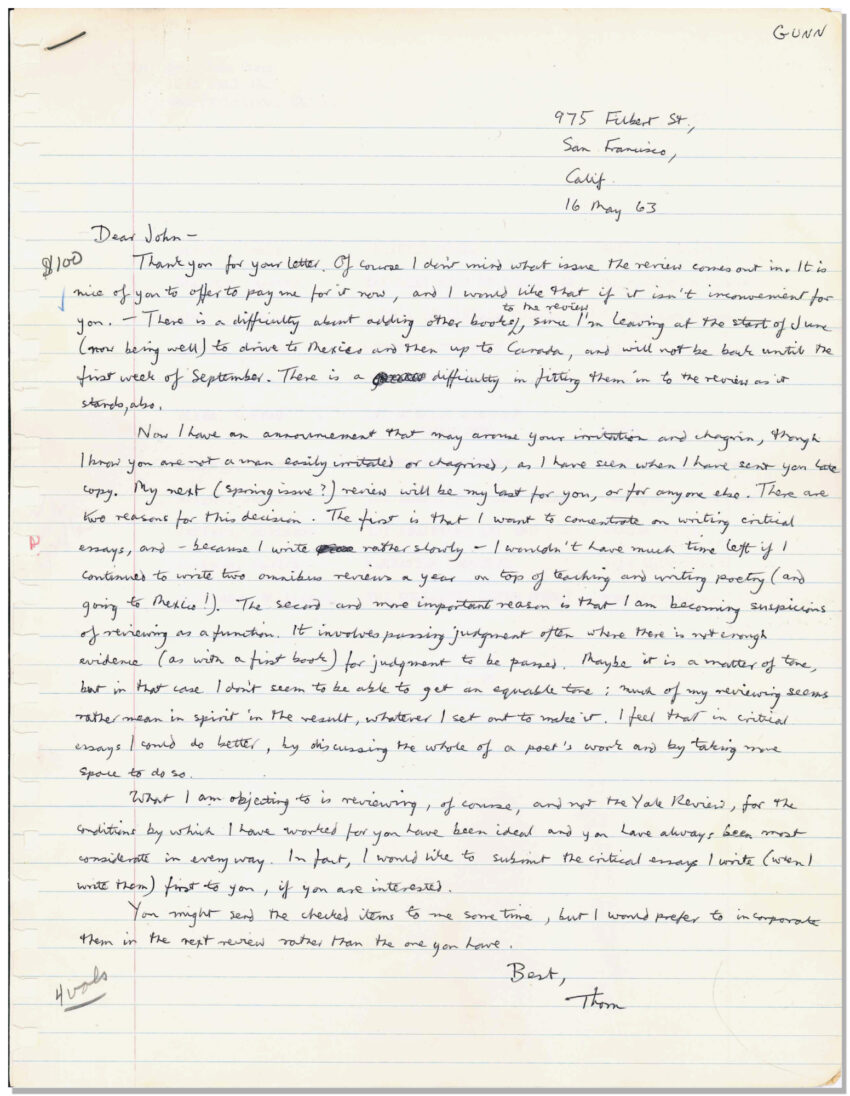 GUNN
975 Filbert St.,
San Francisco,
Calif.
16 May 63
Dear John –
$100
Thank you for your letter. Of course I don't mind what issue the review comes out in. It is
nice of you to offer to pay me for it now, and I would like that if it isn't inconvenient for
to the review
you. – There is a difficulty about adding other books, since I'm leaving at the start of June
(now being well) to drive to Mexico and then up to Canada, and will not be back until the
first week of September. There is a difficulty in fitting them in to the review as it
stands, also.
Now I have an announcement that may arouse your irritation and chagrin, though
I know you are not a man easily irritated or chagrined, as I have seen when I have sent you late
copy. My next (spring issue?) review will be my last for you, or for anyone else. There are
two reasons for this decision. The first is that I want to concentrate on writing critical
essays, and – because I write rather slowly – I wouldn't have much time left if I
continued to write two omnibus reviews a year on top of teaching and writing poetry (and
going to Mexico!). The second and more important reason is that I am becoming suspicious
of reviewing as a function. It involves passing judgment often where there is not enough
evidence (as with a first book) for judgment to be passed. Maybe it is a matter of tone,
but in that case I don't seem to be able to get an equable tone; much of my reviewing seems
rather mean in spirit in the result, whatever I set out to make it. I feel that in critical
essays I could do better, by discussing the whole of a poet's work and by taking more
space to do so.
What I am objecting to is reviewing, of course, and not the Yale Review, for the
conditions by which I have worked for you have been ideal and you have always been most
considerate in every way. In fact, I would like to submit the critical essays I write (when I
write them) first to you, if you are interested.
You might send the checked items to me some time, but I would prefer to incorporate
them in the next review rather than the one you have.
Best,
Thom
4 vols